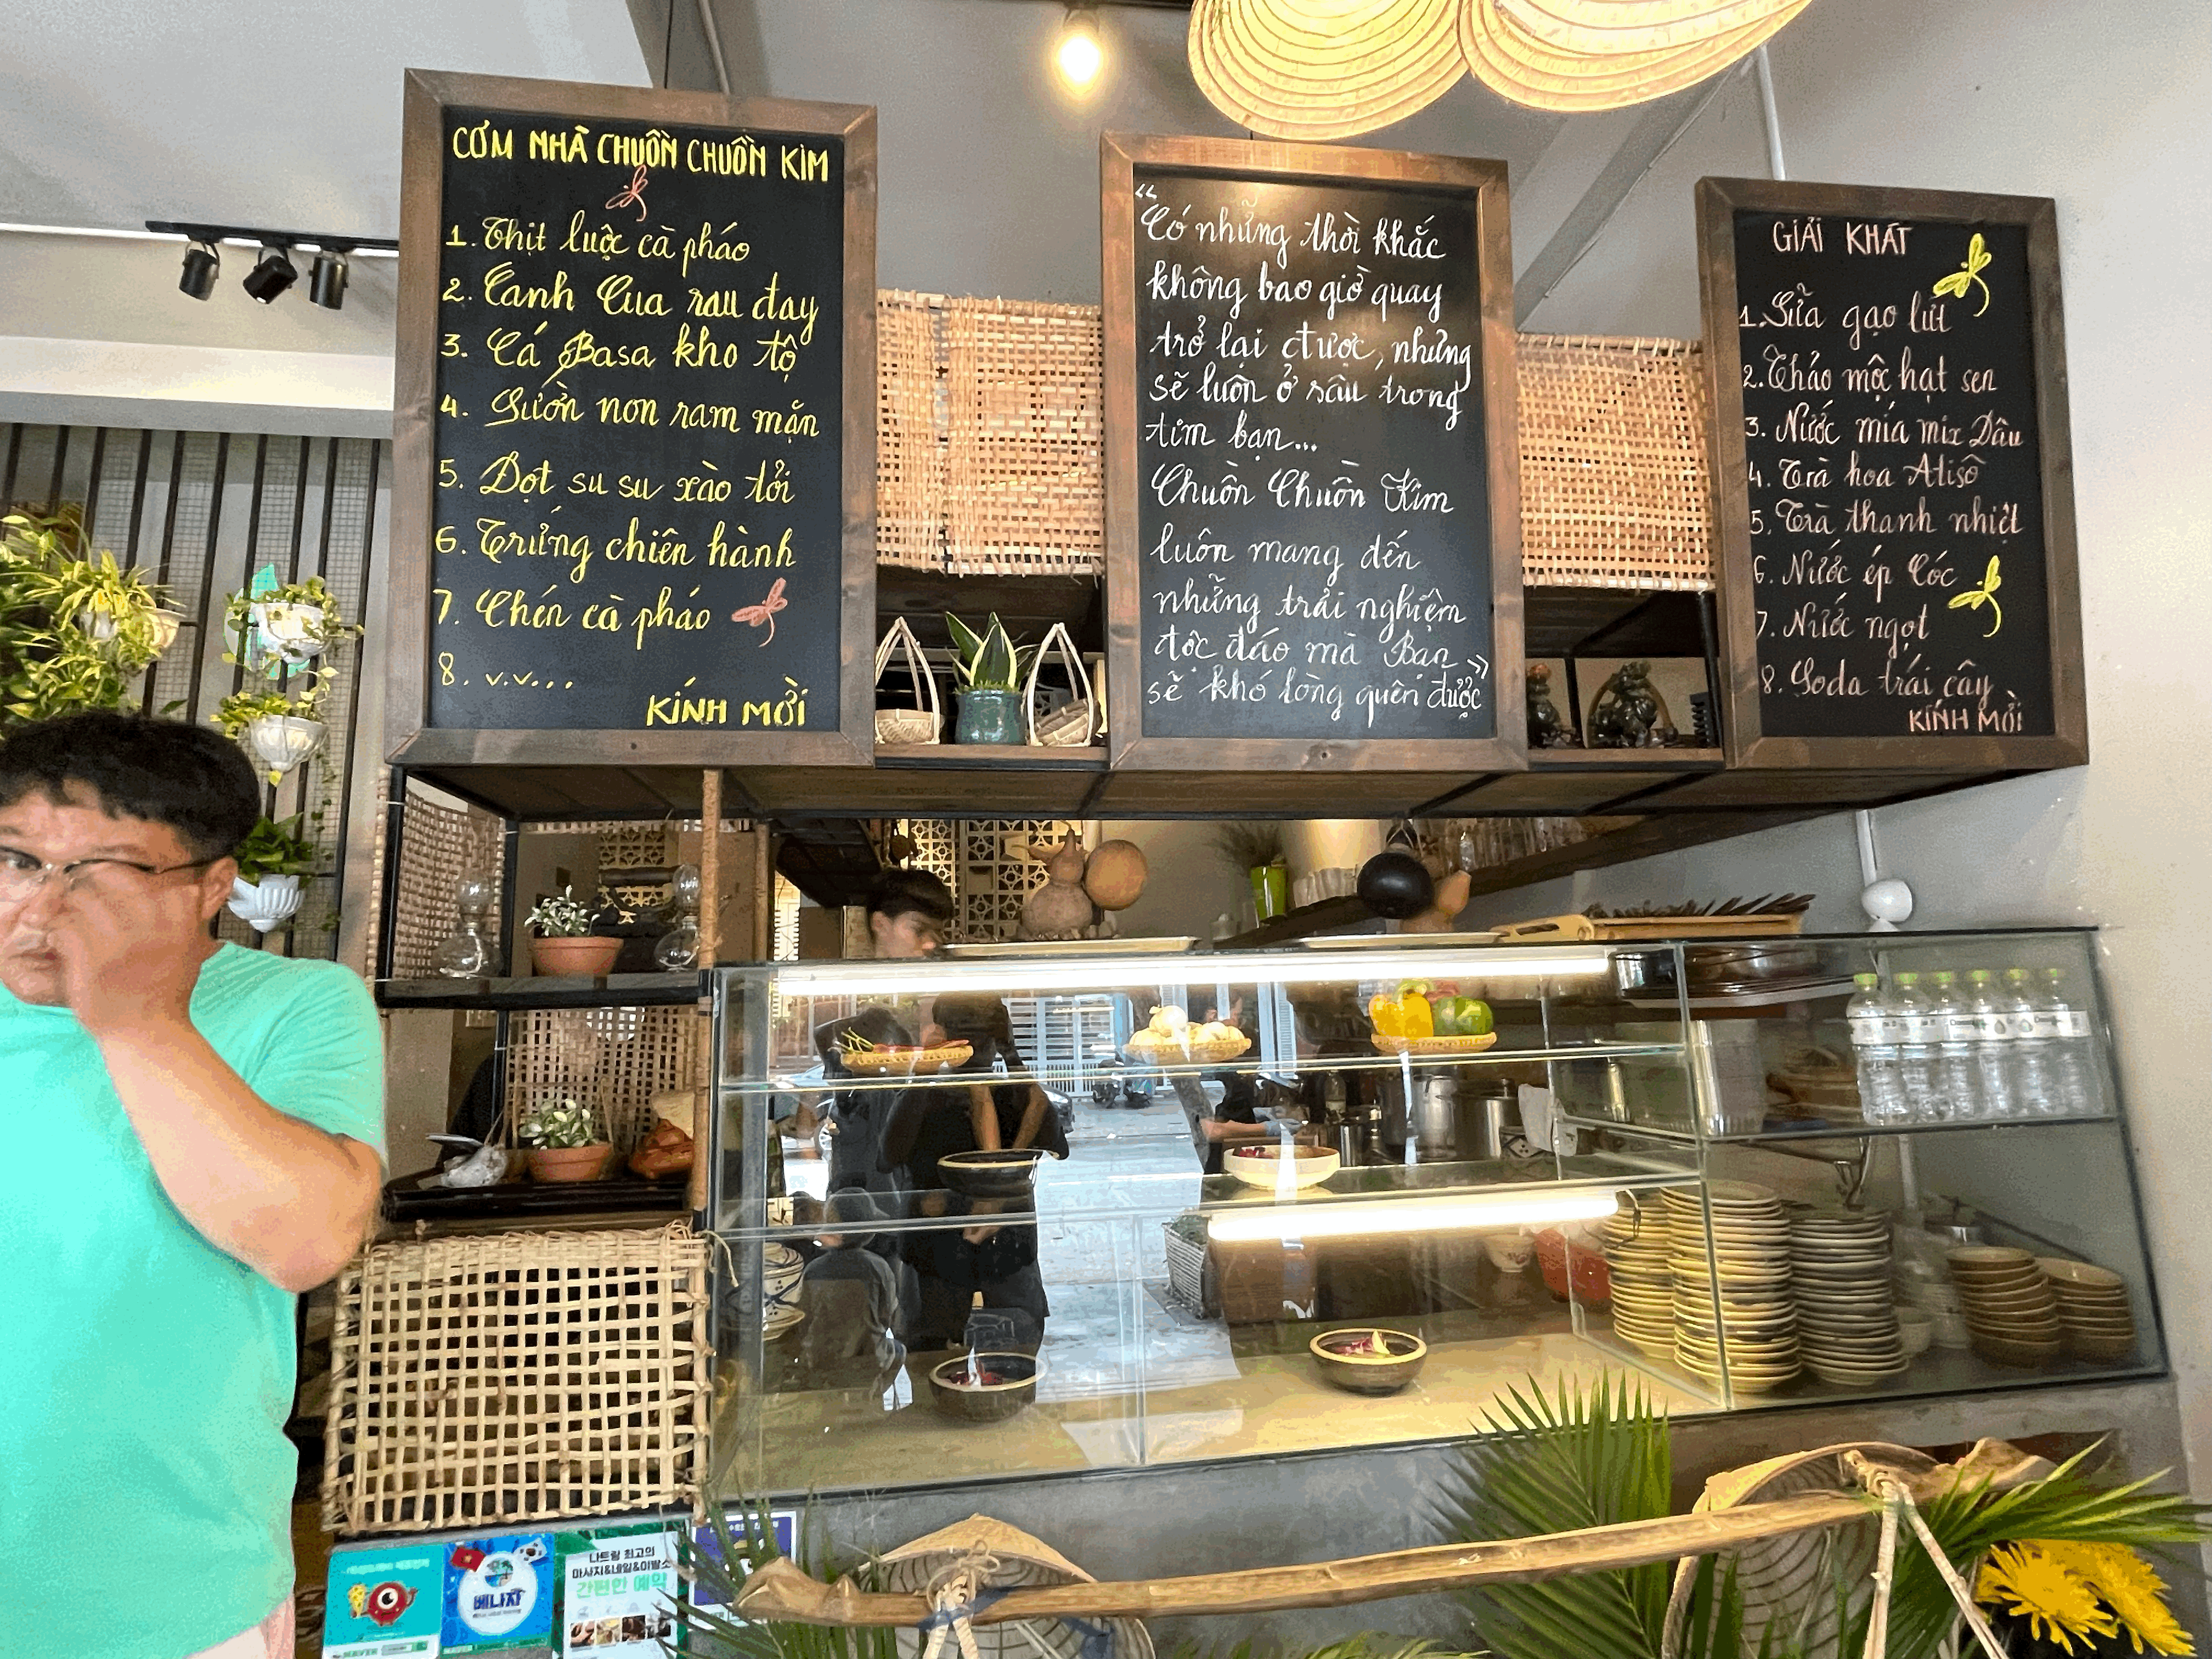 CƠM NHÀ CHUỒN CHUỒN KIM
1. Thịt luộc cà pháo
2. Canh Cua rau đay
3. Cá Basa kho tộ
4. Sườn non ram mặn
5. Dọt su su xào tỏi
6. Trứng chiên hành
7. Chén cà pháo
8. v.v...
KÍNH MỜI
“Có những thời khắc
không bao giờ quay
trở lại được, nhưng
sẽ luôn ở sâu trong
tim bạn...
Chuồn Chuồn Kim
luôn mang đến
những trải nghiệm
độc đáo mà Bạn
sẽ khó lòng quên được”
GIẢI KHÁT
1. Sữa gạo lứt
2. Thảo mộc hạt sen
3. Nước mía mix Dâu
4. Trà hoa Atisô
5. Trà thanh nhiệt
6. Nước ép Cóc
7. Nước ngọt
8. Soda trái cây
KÍNH MỜI
베나자
나트랑 최고의
마사지&네일&이발소
간편한 예약